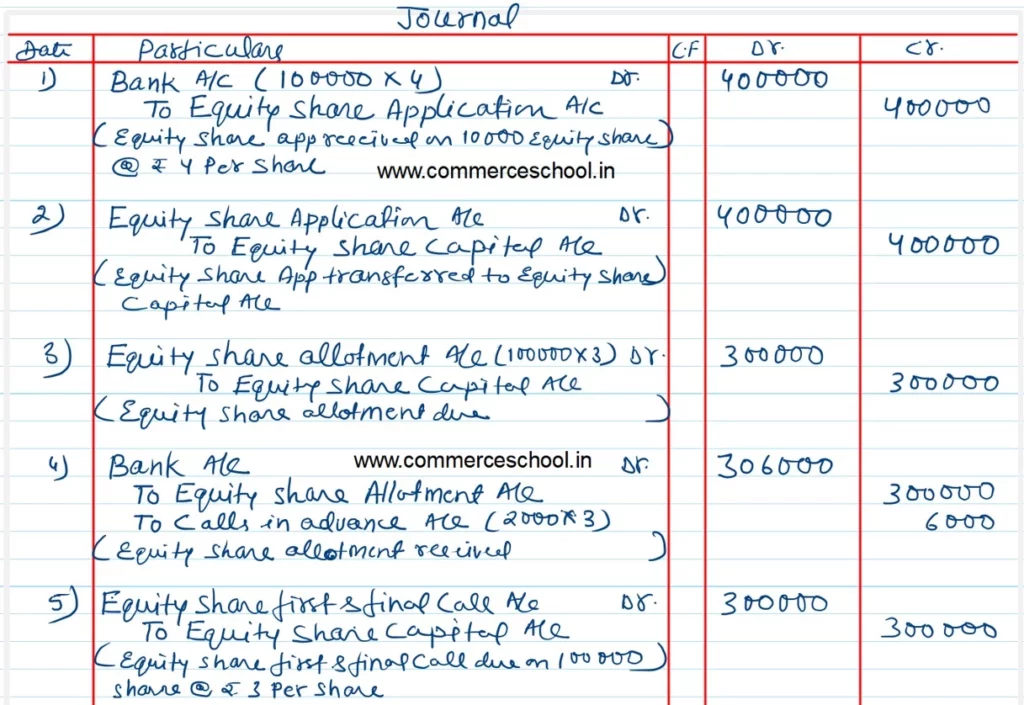 Journal
Date Particulars C.F Dr. Cr.
1) Bank A/c (100000 x 4) Dr. 400000
To Equity Share Application A/c 400000
(Equity Share app received on 10000 Equity Share)
@ ₹ 4 Per Share www.commerceschool.in
2) Equity Share Application A/c Dr. 400000
To Equity Share Capital A/c 400000
(Equity Share App transferred to Equity Share)
Capital A/c
3) Equity Share allotment A/c (100000x3) Dr. 300000
To Equity Share Capital A/c 300000
(Equity Share allotment due )
4) Bank A/c www.commerceschool.in Dr. 306000
To Equity Share Allotment A/c 300000
To Calls in advance A/c (2000x3) 6000
(Equity Share allotment received )
5) Equity Share first & final Call A/c Dr. 300000
To Equity Share Capital A/c 300000
(Equity Share first & final Call due on 100000)
Share @ ₹ 3 Per Share